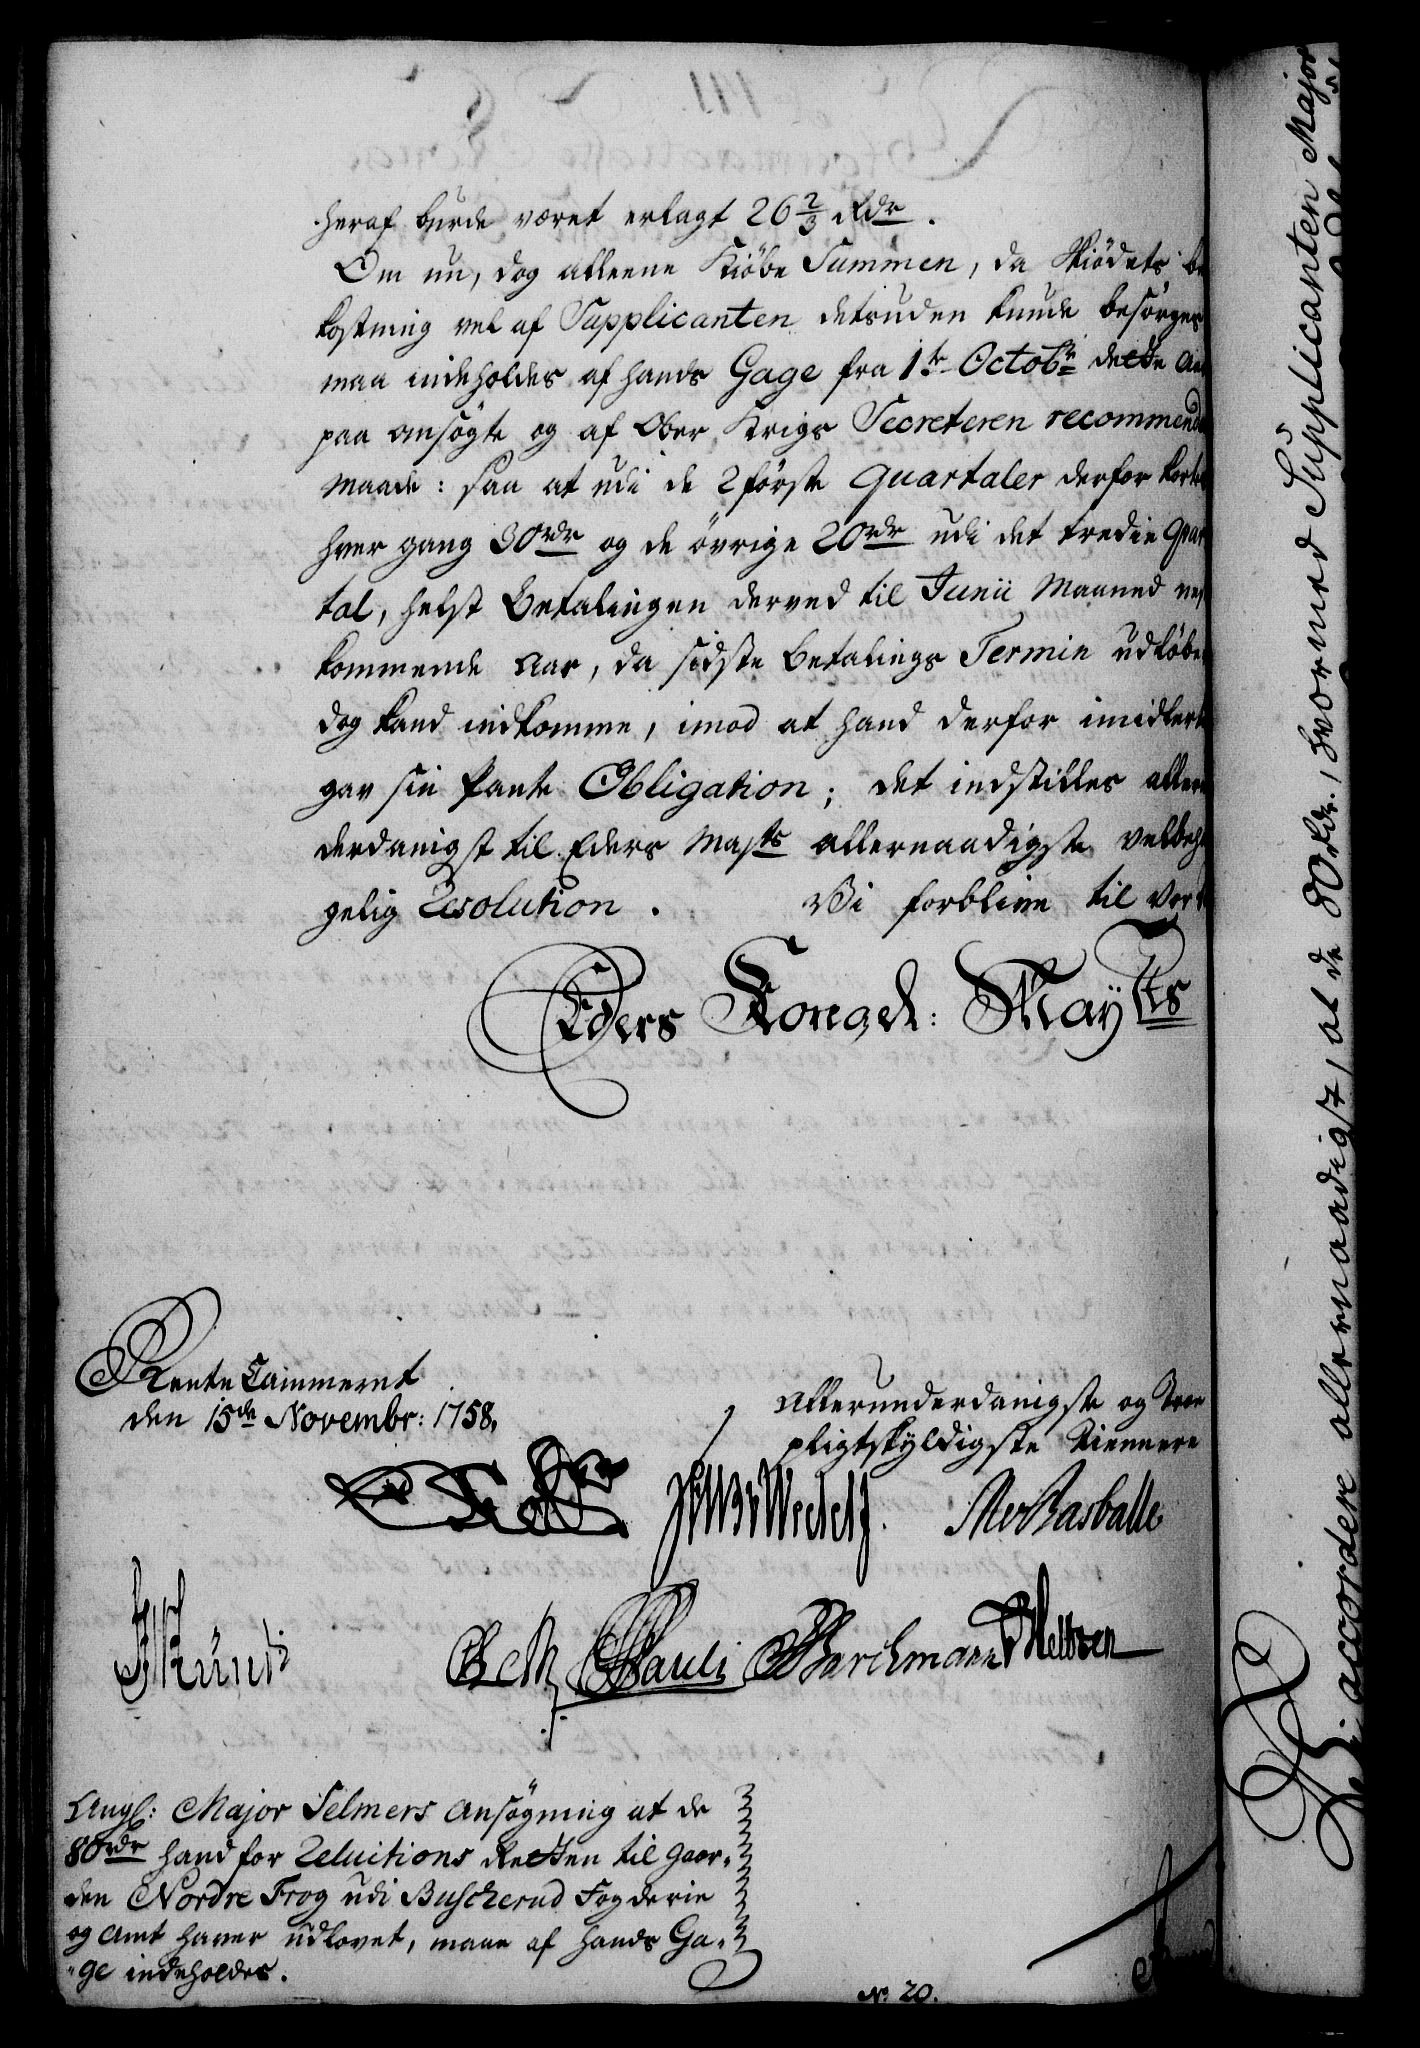 heraf burde været erlagt 26 2/3 Rdr.
Om nu, dog alleene Kiöbe Summen, da Skiödets be
kostning vel af Supplicanten desuden kunde besörges
maa indeholdes af hands Gage fra 1te Octobr dette Aar
paa ansögte og af Ober Krigs Secreteren recommende
Maade: saa at udi de 2 förste Quartaler derfor korte
hver gang 30rdr og de övrige 20rdr udi det tredie Qvar
tal, helst Betalingen derved til Junii Maaned nest
kommende Aar, da sidste Betalings Termin udlöber
dog kand indkomme, imod at hand derfor imidlert
gav sin Pante Obligation; det indstilles alleru
derdanigst til Eders Maysts allernaadigste velbeha
gelig Resolution. Vi forblive til vor d
Eders Kongel: Mayts
Rente Cammeret
den 15de Novembr: 1758.
Allerunderdanigste og Troe
pligtskyldigste Tiennere
Wedel
Basballe
Pauli Barchmann
Angl: Major Selmers Ansögning at de
80rdr hand for Reluitions Retten til Gaar-
den Nordre Frog udi Buscherud Fogderie
og Amt haver udlovet, maae af hands Ga-
ge indeholdes.
No 20.
Vi accordere allernaadigst, at de 80 Rdr., hvormed Supplicanten Major